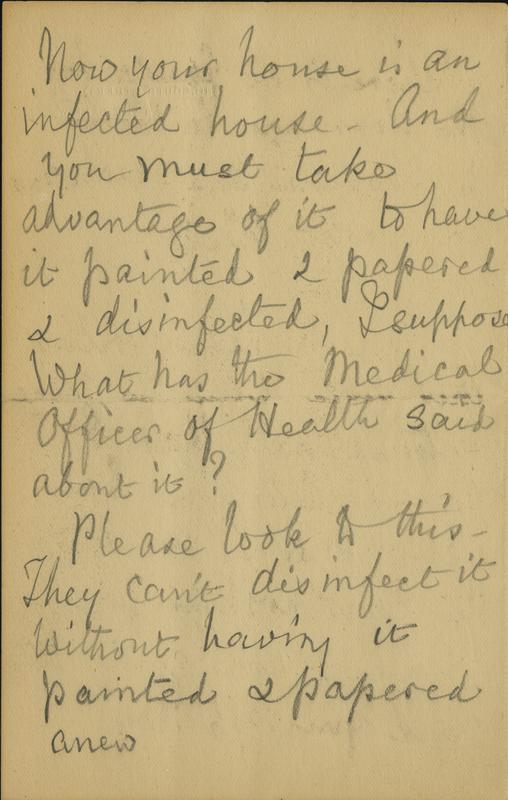 Now your house is an
infected house - And
you must take
advantage of it to have
it painted & papered
& disinfected, I suppose
What has the Medical
Officer of Health said
about it?
Please look to this -
They can't disinfect it
without having it
painted & papered
anew